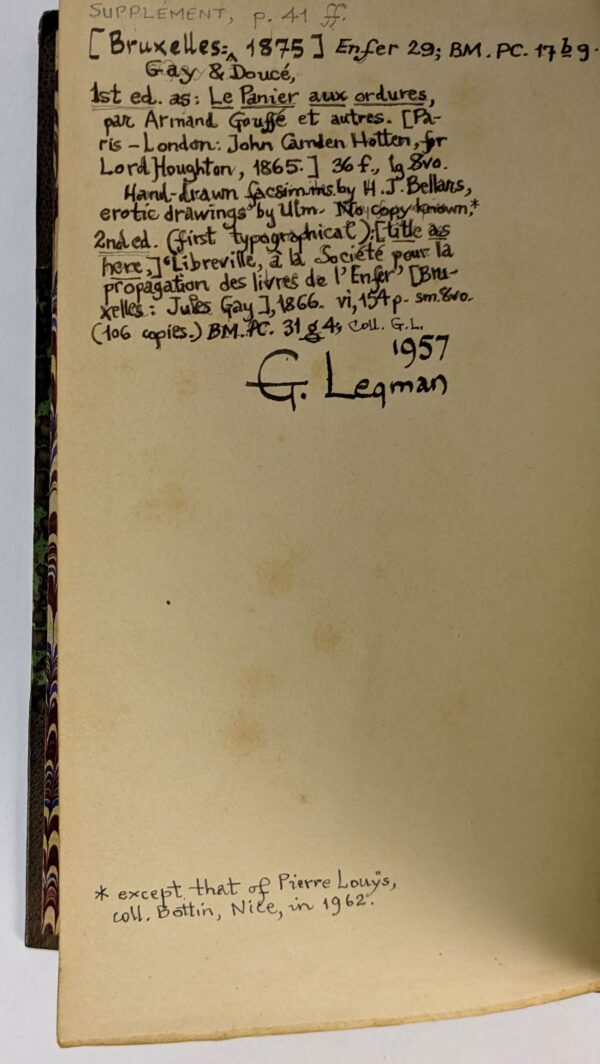 SUPPLÉMENT, p. 41 ff.
[Bruxelles:‸ 1875] Enfer 29; BM. PC. 17 b 9.
Gay & Doucé,
1st ed. as: Le Panier aux ordures,
par Armand Gouffé et autres. [Pa-
ris – London: John Camden Hotten, for
Lord Houghton, 1865.] 36 f., lg 8vo.
Hand-drawn facsim. ms. by H. J. Bellars,
erotic drawings by Ulm. No copy known;*
2nd ed. (first typographical): [title as
here,] "Libreville, à la Société pour la
propagation des livres de l'Enfer" [Bru-
xelles: Jules Gay], 1866. vi, 154 p. sm. 8vo.
(106 copies.) BM. PC. 31 g 4; coll. G.L.
1957
G. Legman
* except that of Pierre Louÿs,
coll. Bottin, Nice, in 1962.